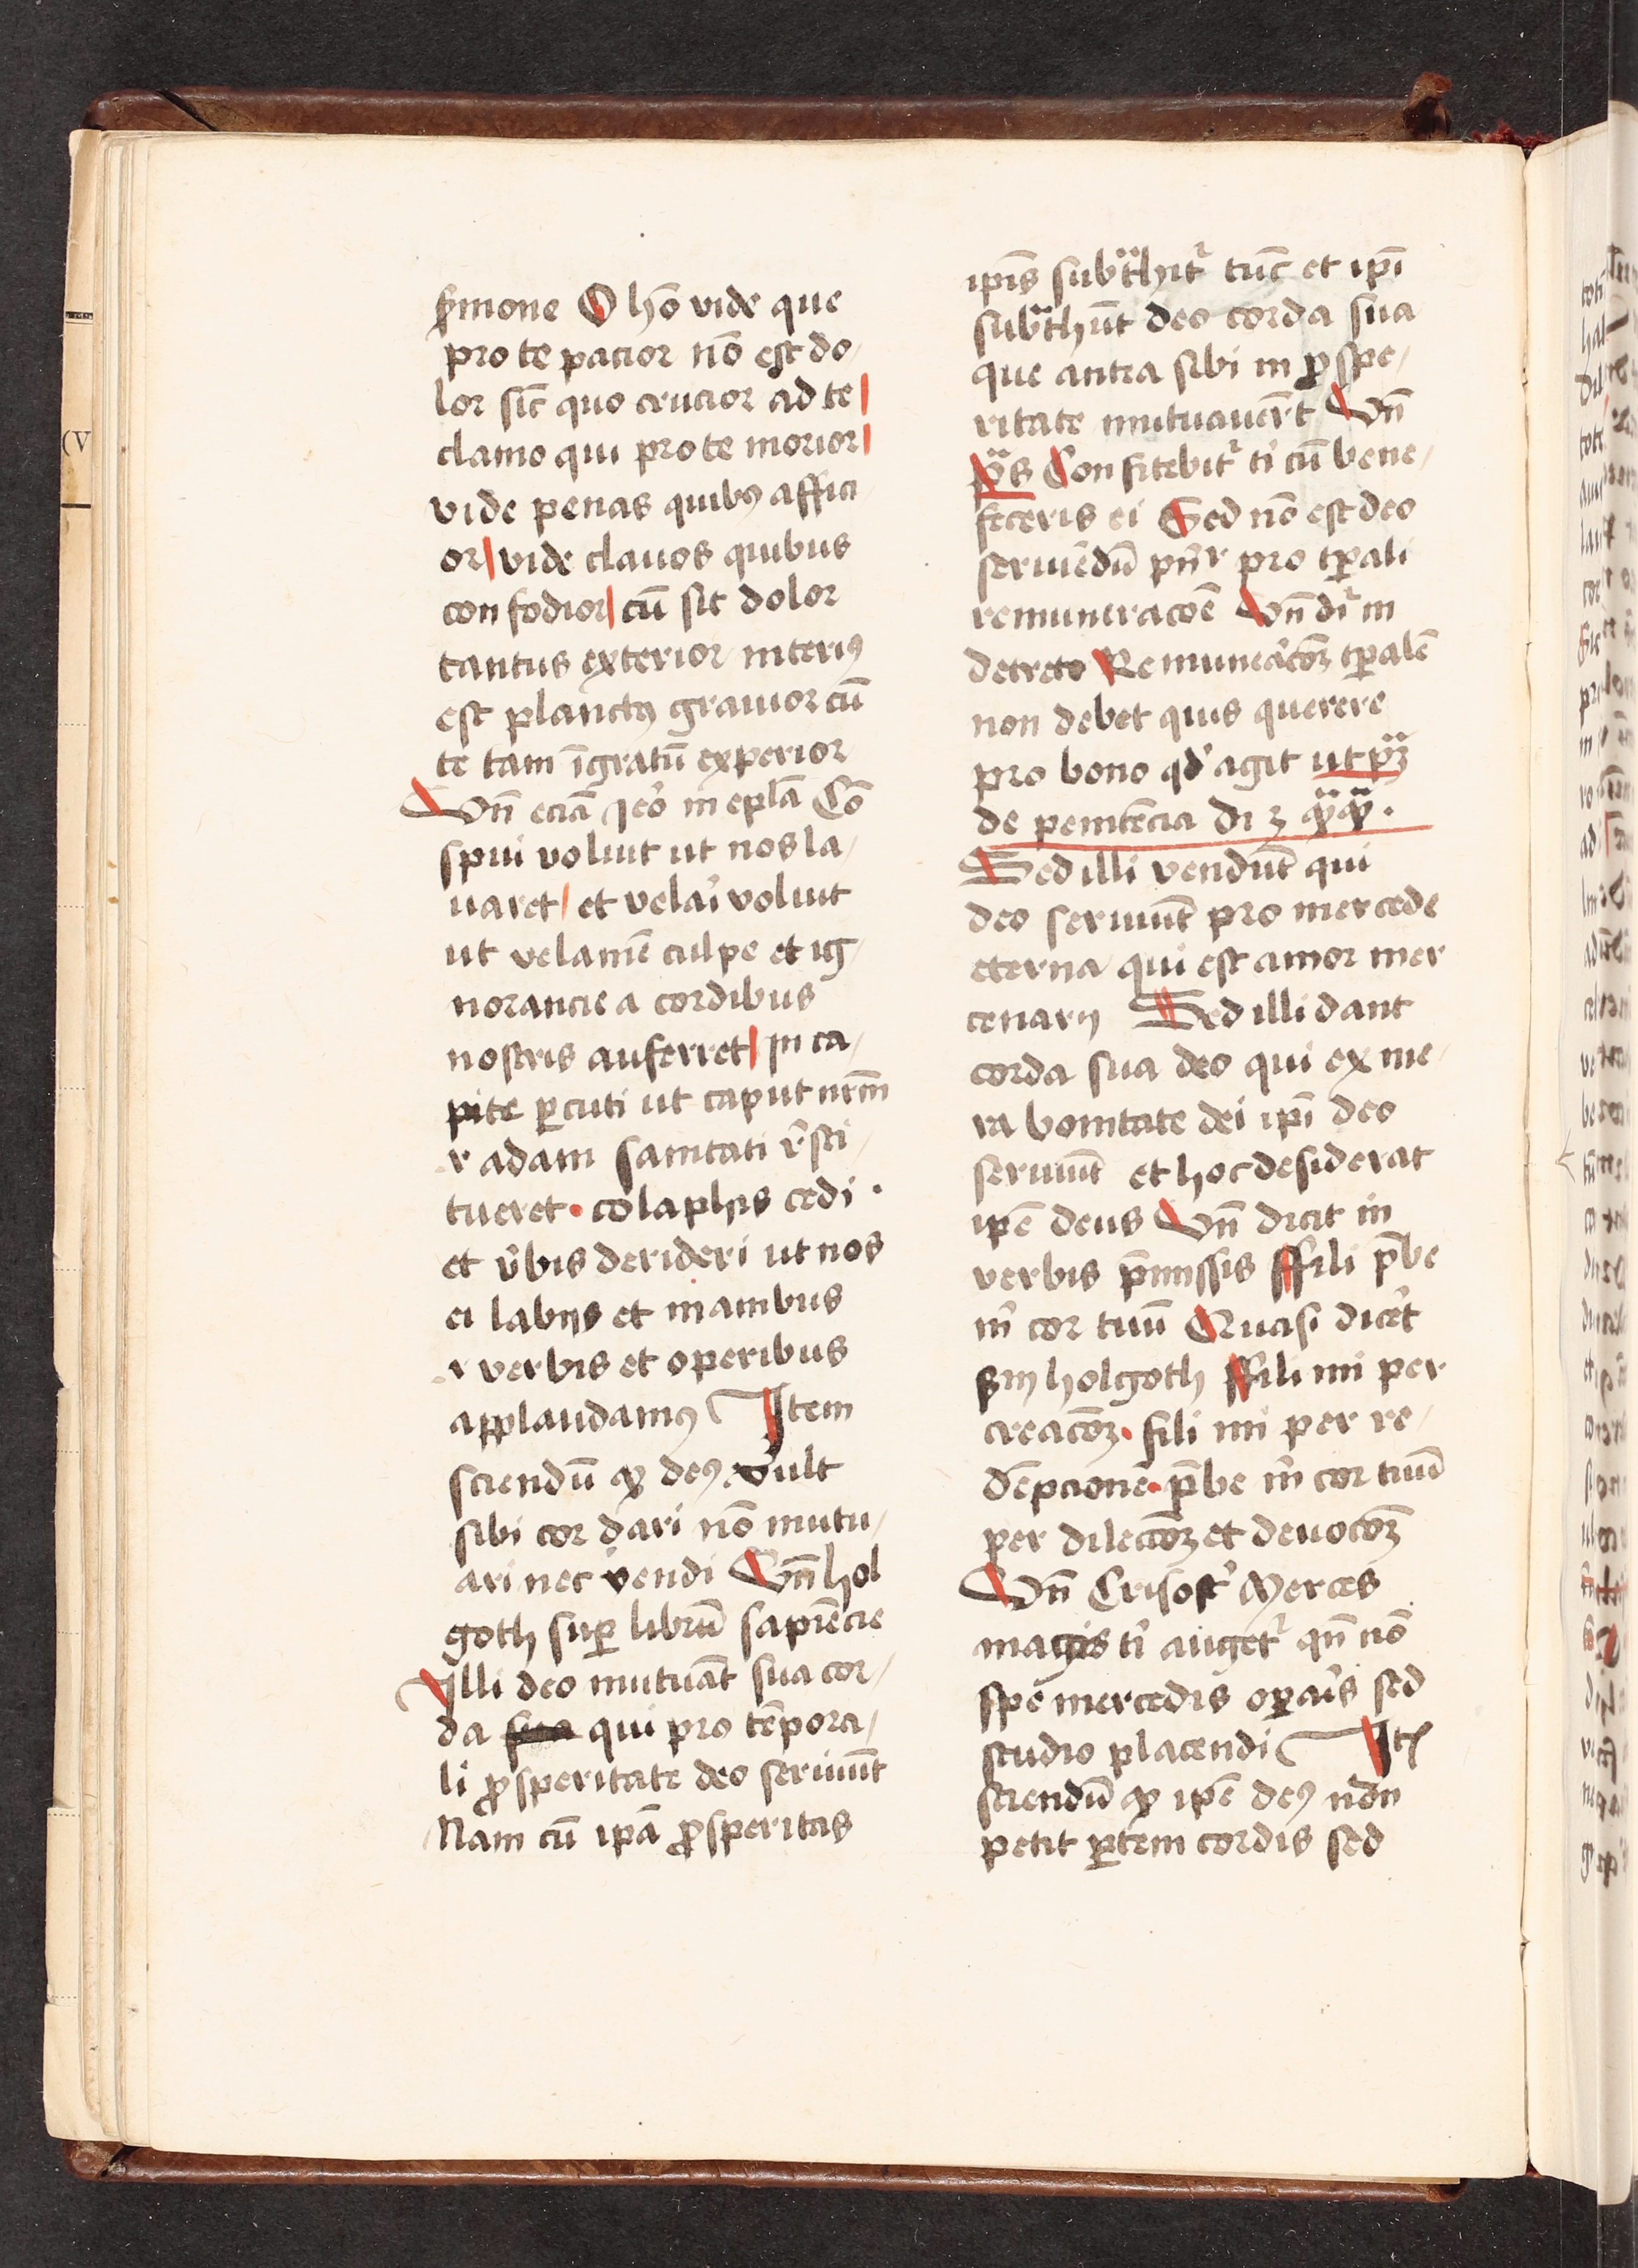 sꝰmone O hō vide que
pro te pacior nō est do/
lor sic̄ quo crucior ad te
clamo qui pro te morior
vide penas quibꝰ affici
or vide clauos quibus
confodior cū sit dolor
tantus exterior interiꝰ
est planctꝰ grauior cū
te tam īgratū experior
Vn̄ eciā Jeō in epl̄a Cō
spui voluit ut nos la/
uaret et velaī voluit
ut velamē culpe et ig/
norancie a cordibus
nostris auferret in ca/
pite ꝑcuti ut caput nr̄m
r adam sanitati r̄sti/
tueret · colaphis cedi ·
et v̄bis derideri ut nos
ei labijs et manibus
r verbis et operibus
applaudamꝰ Item
sciendū ꝙ deꝰ vult
sibi cor dari nō mutu/
ari nec vendi Vn̄ hol
goth suꝑ librū sapiēcie
Illi deo mutuāt sua cor/
da qui pro tēpora/
li ꝓsperitate deo seruiūt
Nam cū ipā ꝓsperitas
ipīs subᵃthitᷣ tūc et ipī
subᵃthūt deo corda sua
que antea sibi in ꝓspe/
ritate mutuauer̄t Vn̄
pᵃ̄s Confitebitᷣ tⁱ cū bene/
feceris ei Sed nō est deo
seruiēdū pn̄r pro tꝑali
remuneracōe Vn̄ dr̄ in
decreto Remunerac̄oꝫ tꝑalē
non debet quis querere
pro bono qd̓ agit ut pꝫ
de penitēcia di 3
Sed illi vendūt qui
deo seruiūt pro mercede
eterna qui est amor mer
cenarij Sed illi dant
corda sua deo qui ex me/
ra bonitate dei ipī deo
seruiūt et hoc desiderat
ipē deus Vn̄ dicit in
verbis p̄missis ffili p̄be
mⁱ cor tuū Quasi dicēt
sm holgoth ffili mi per
creac̄oꝫ · fili mi per re/
dēpcionē · p̄be mⁱ cor tuū
per dilecc̄oꝫ et deuoc̄oꝫ
Vn̄ Crisostᷣ Merces
magis tⁱ augetᷣ qn̄ nō
spe mercedis oꝑaīs sed
studio placendi Itꝭ
sciendū ꝙ ipē deꝰ non
petit ꝑtem cordis sed